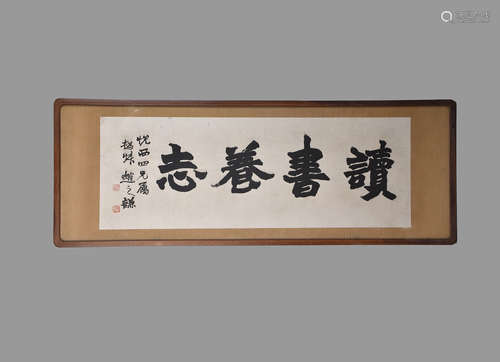 讀書養志
悅西四兄屬
撝叔趙之謙